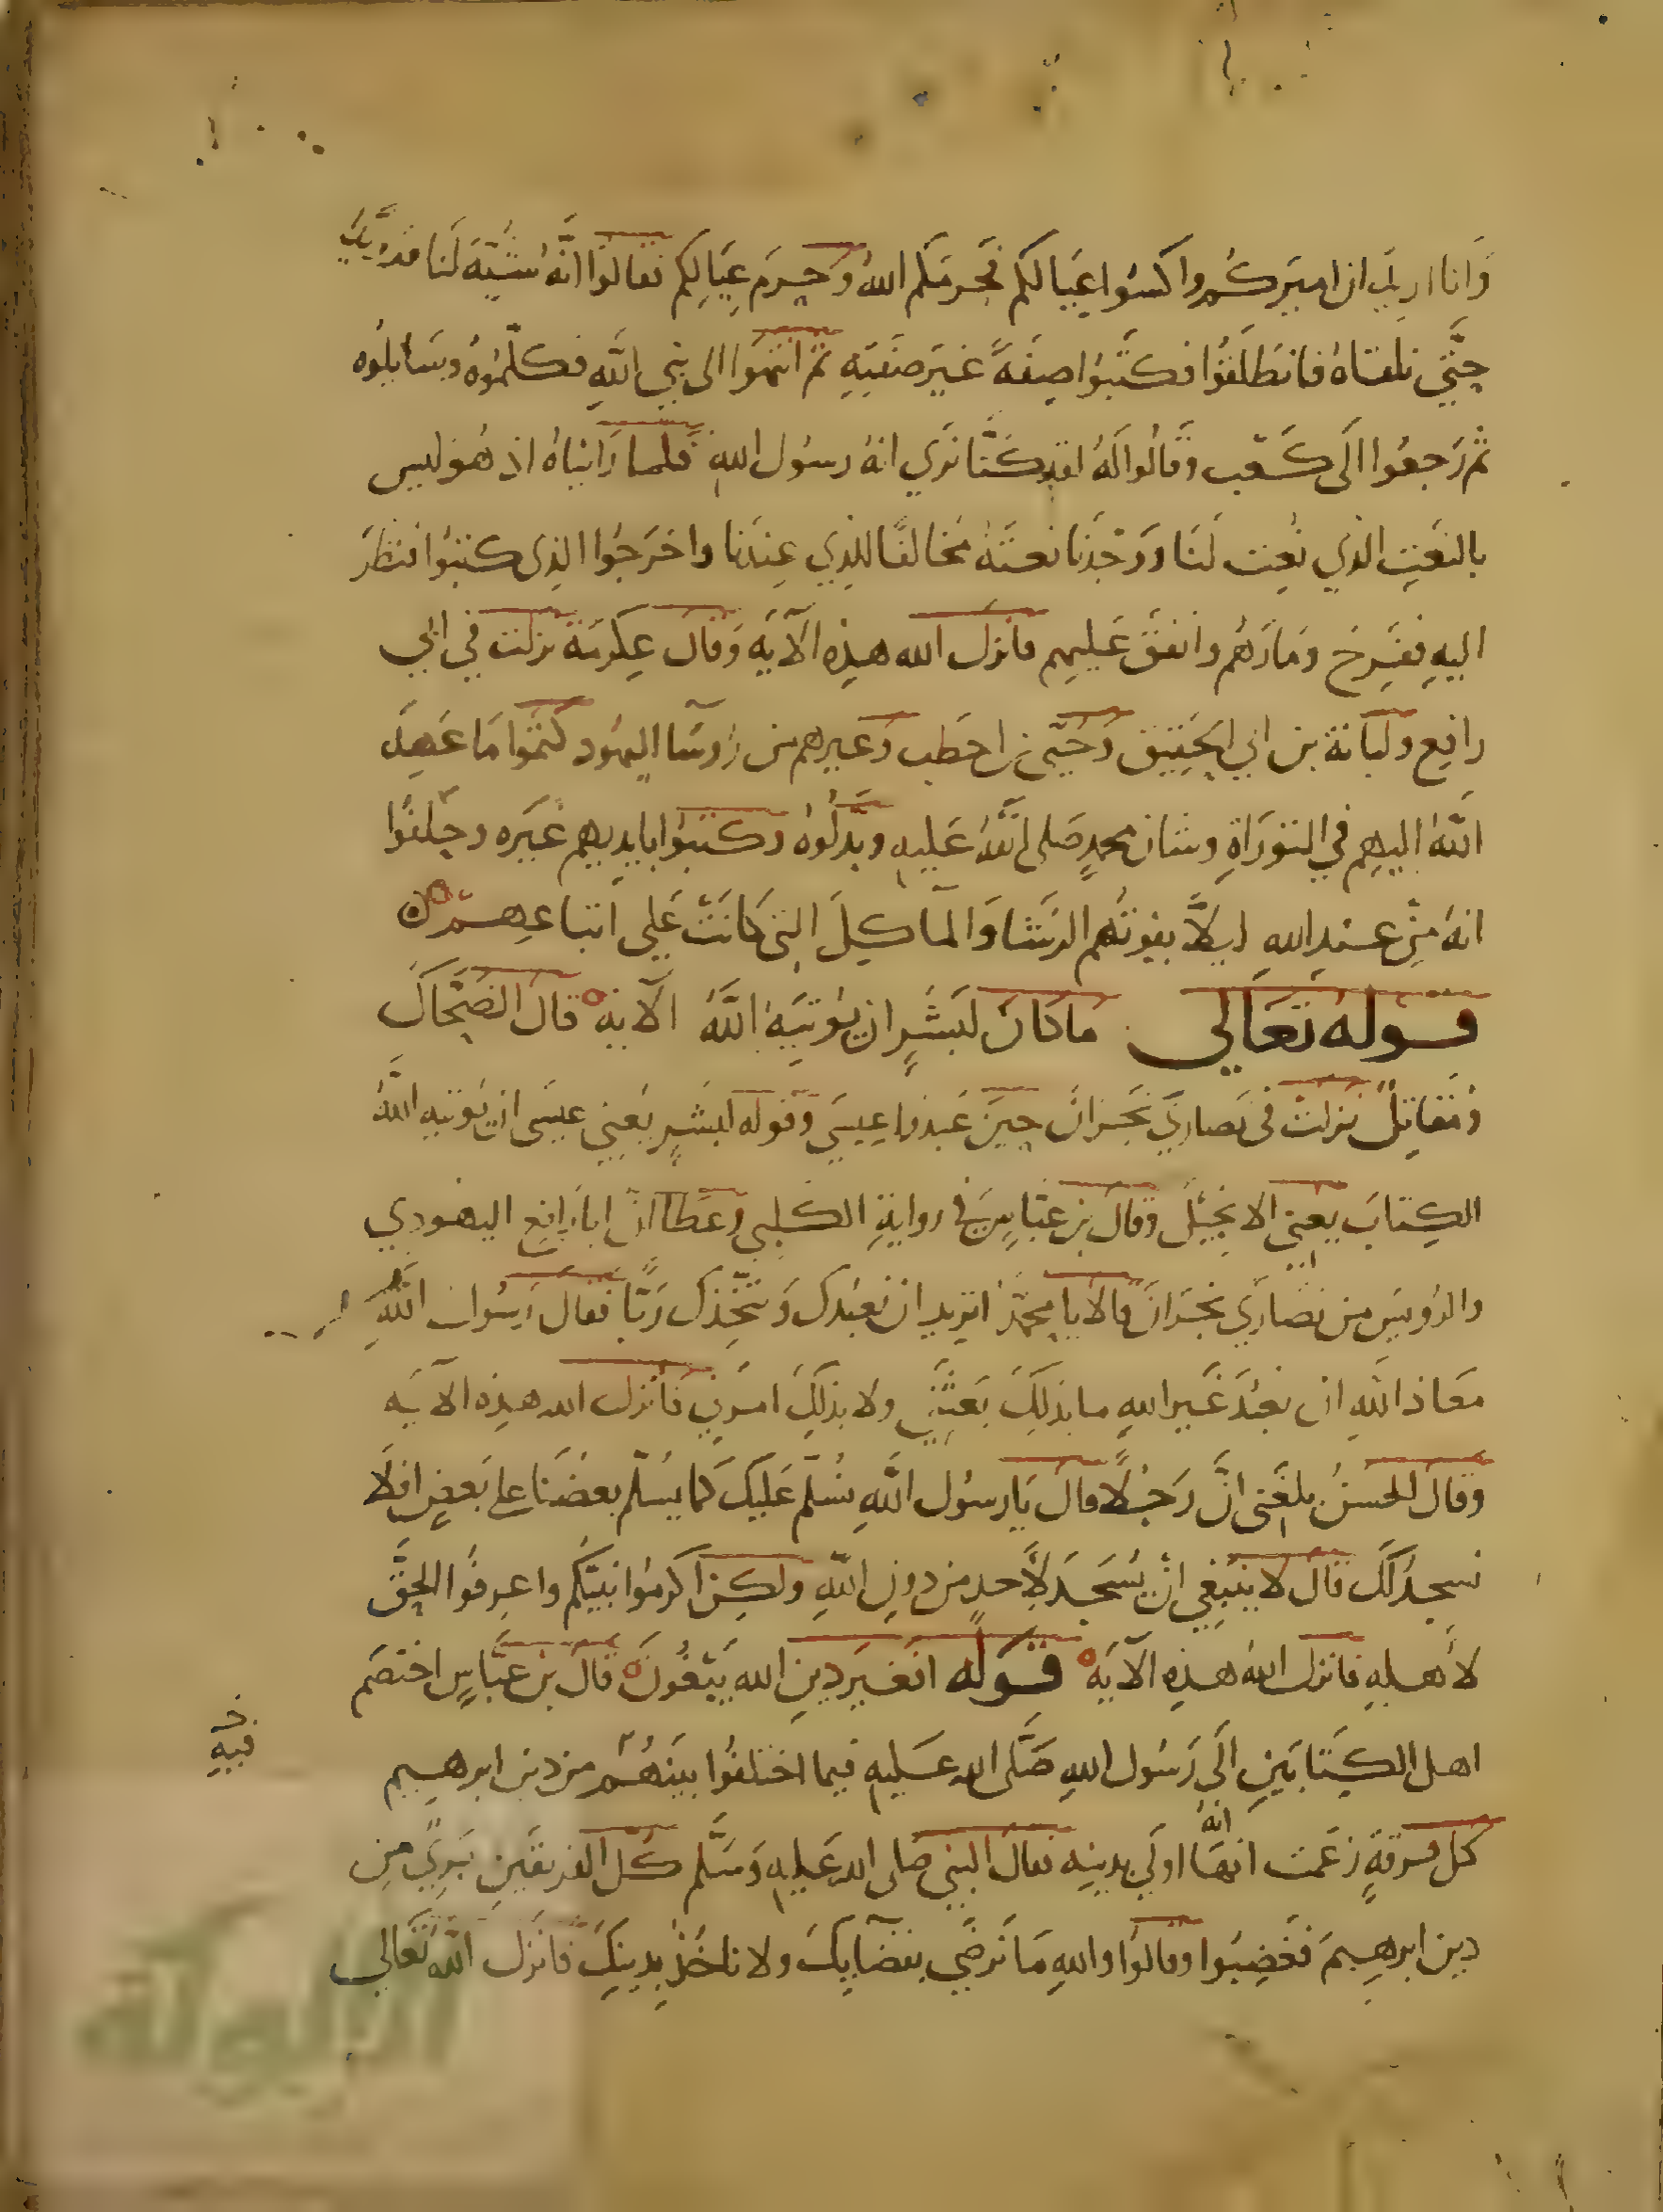 وَانا اريد ان اميركم واكسوا عيالكم فحرمكم الله وحرم عيالكم فقالوا انه شبه لنا فرويدًا
حتى نلقاه فانطلقوا فكتبوا صفةً غير صفته ثم انتهوا الى نبي الله فكلموه وسايلوه
ثم رجعوا الى كعب وقالوا له لقد كنا نرى انه رسول الله فلما راَيناه اذ هو ليس
بالنعت الذي نعت لنا ووجدنا نعته مخالفًا للذي عندنا واخرجوا الذي كتبوا فنظر
اليه ففرح ومارهم وانفق عليهم فانزل الله هذه الآية وقال عكرمة نزلت في ابي
رافع ولبابة بن ابي الحقيق وحيي بن اخطب وغيرهم من رُوسآ اليهود كتموا ما عهد
اللهُ اليهم في التوراة وشان محمدٍ صلى اللهُ عليه وبدلوه وكتبوا بايديهم غيره وحلفوا
انه من عند الله ليلاَّ يفوتهم الرشا والمآكل التي كانت على اتباعهم ه
قوله تعالى ما كان لبشرٍ ان يؤتيه اللهُ الآية قال الضحاك
ومقاتلٌ نزلت في نصارى نجران حين عبدوا عيسى وقوله لبشرٍ يعني عيسى ان يؤتيه اللهُ
الكتابَ يعني الانجيل وقال بن عباس في رواية الكلبي وعطا انّ ابا رافع اليهودي
والرويس من نصارى نجران قالا يا محمدُ اتريد ان نعبدك ونتخذك ربًّا فقال رسول اللهِ
معاذ اللهِ ان نعبُدَ غير اللهِ ما بذلك بعثني ولا بذلك امرني فانزل الله هذه الآية
وقال الحسنُ بلغني انَّ رجلاً قال يا رسول اللهِ نسلّم عليك كما يسلّم بعضنا على بعضٍ افلا
نسجدُ لك قال لا ينبغي ان يُسجدَ لأحدٍ من دون اللهِ ولكن اكرموا نبيكم واعرفوا الحقَّ
لأهله فانزل اللهُ هذه الآية قوله افغير دين الله يبغون قال بن عباسٍ اختصم
اهل الكتابين الى رسول اللهِ صلَّى الله عليه فيما اختلفوا بينهم من دين ابرهيم
فيه
كل فرقةٍ زعمت انها اولى بدينه فقال النبي صلى الله عليه وسلَّم كل الفريقين بري من
انه
دين ابرهيم فغضبوا وقالوا والله ما نرضى بقضايك ولا ناخذ بدينك فانزل الله تعالى
الألوكة